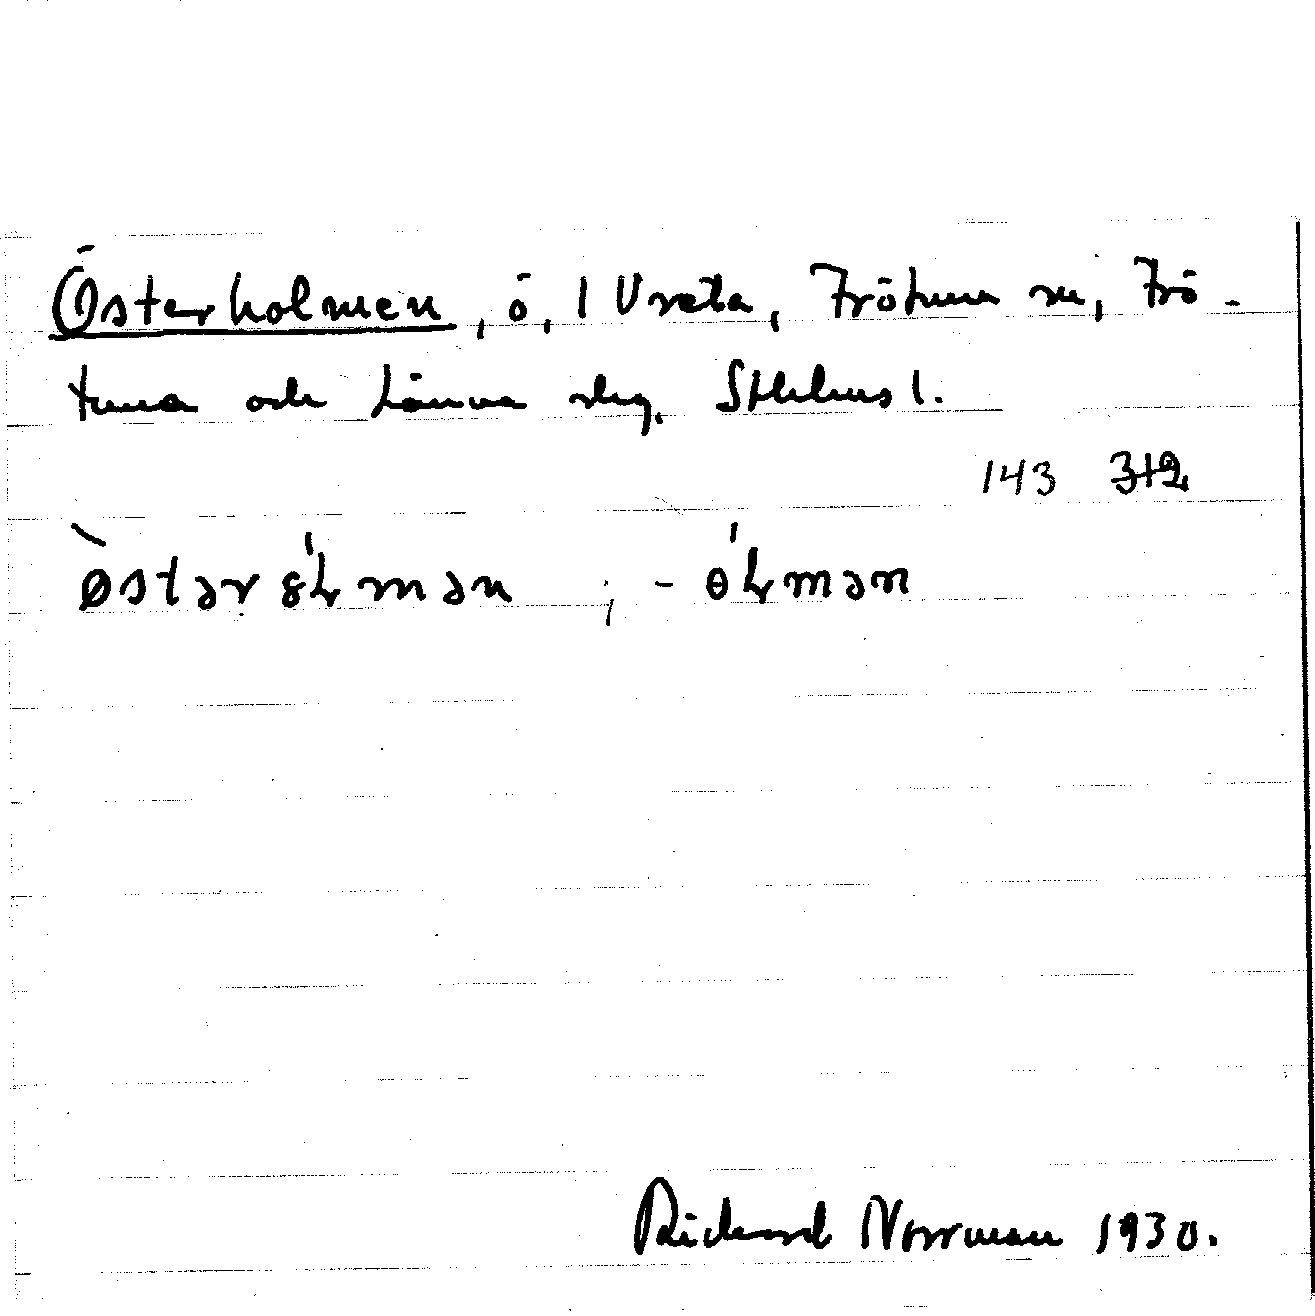 Österholmen, ö, 1 Vreta, Frötuna sn, Frö-
tuna och Länna skg. Sthlms l.
143 312
østər ɞ́ɫmən ; - ɵ́ɫmən
Rickard Norrman 1930.